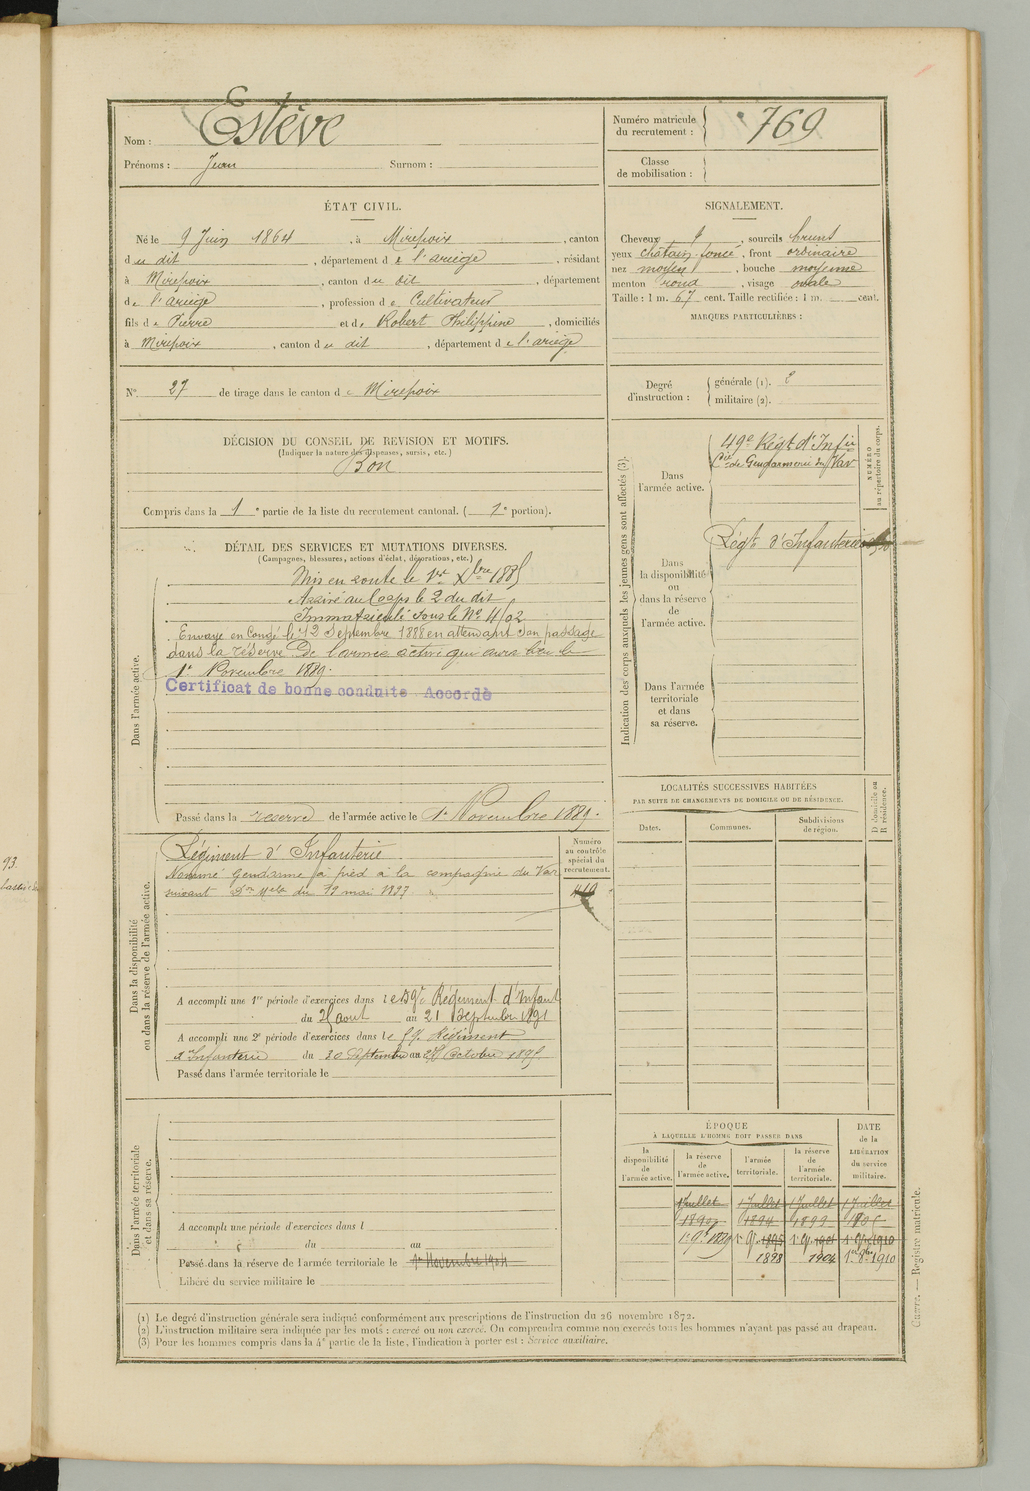 Nom : Estève
Prénoms : Jean Surnom :
Numéro matricule
du recrutement : 769
Classe
de mobilisation :
ÉTAT CIVIL.
Né le 9 Juin 1864, à Mirepoix, canton
du dit, département de l'ariège, résidant
à Mirepoix, canton du dit, département
de l'ariège, profession de Cultivateur
fils de Pierre et de Robert Philippine, domiciliés
à Mirepoix, canton du dit, département de l'ariège
N° 27 de tirage dans le canton de Mirepoix
SIGNALEMENT.
Cheveux, sourcils bruns
yeux châtain foncé, front ordinaire
nez moyen, bouche moyenne
menton rond, visage ovale
Taille : 1 m. 67 cent. Taille rectifiée : 1 m. cent.
MARQUES PARTICULIÈRES :
Degré
d'instruction :
générale (1).
militaire (2).
DÉCISION DU CONSEIL DE REVISION ET MOTIFS.
(Indiquer la nature des dispenses, sursis, etc.)
Bon
Compris dans la 1e partie de la liste du recrutement cantonal. (1e portion).
DÉTAIL DES SERVICES ET MUTATIONS DIVERSES.
(Campagnes, blessures, actions d'éclat, décorations, etc.)
Dans l'armée active.
Mis en route le 1er Xbre 1885
Arrivé au Corps le 2 du dit
Immatriculé sous le No
Envoyé en Congé le 12 Septembre 1888 en attendant son passage
dans la réserve De l'armée active qui aura lieu le
1er Novembre 1889.
Certificat de bonne conduite Accordé
Passé dans la reserve de l'armée active le 1er Novembre 1889.
Indication des corps auxquels les jeunes gens sont affectés (3).
Dans
l'armée active.
49e Régt d'Infie
Cie de Gendarmerie du Var
NUMÉRO
au répertoire du corps.
Dans
la disponibilité
ou
dans la réserve
de
l'armée active.
Régt d'Infanterie
Dans l'armée
territoriale
et dans
sa réserve.
LOCALITÉS SUCCESSIVES HABITÉES
PAR SUITE DE CHANGEMENTS DE DOMICILE OU DE RÉSIDENCE.
Dates.
Communes.
Subdivisions
de région.
D domicile ou
R résidence.
Dans la disponibilité
ou dans la réserve de l'armée active.
Régiment d'Infanterie
Numéro
au contrôle
spécial du
recrutement.
Nommé Gendarme à pied à la compagnie du Var
suivant Don Mele du 19 mai 1897
A accompli une 1re période d'exercices dans le 59e Régiment d'Infant
du 25 aout au 21 Septembre 1891
A accompli une 2e période d'exercices dans le 59e Régiment
d'Infanterie du 30 Septembre au Octobre 1895
Passé dans l'armée territoriale le
Dans l'armée territoriale
et dans sa réserve.
A accompli une période d'exercices dans l
du au
Passé dans la réserve de l'armée territoriale le 1er Novembre 1904
Libéré du service militaire le
ÉPOQUE
À LAQUELLE L'HOMME DOIT PASSER DANS
la
disponibilité
de
l'armée active.
la réserve
de
l'armée active.
l'armée
territoriale.
la réserve
de
l'armée
territoriale.
DATE
de la
LIBÉRATION
du service
militaire.
1 Juillet 1 Juillet 1 Juillet 1 Juillet
1890 1894 1899
1898 1904 1910
(1) Le degré d'instruction générale sera indiqué conformément aux prescriptions de l'instruction du 26 novembre 1872.
(2) L'instruction militaire sera indiquée par les mots : exercé ou non exercé. On comprendra comme non exercés tous les hommes n'ayant pas passé au drapeau.
(3) Pour les hommes compris dans la 4e partie de la liste, l'indication à porter est : Service auxiliaire.
Registre matricule.